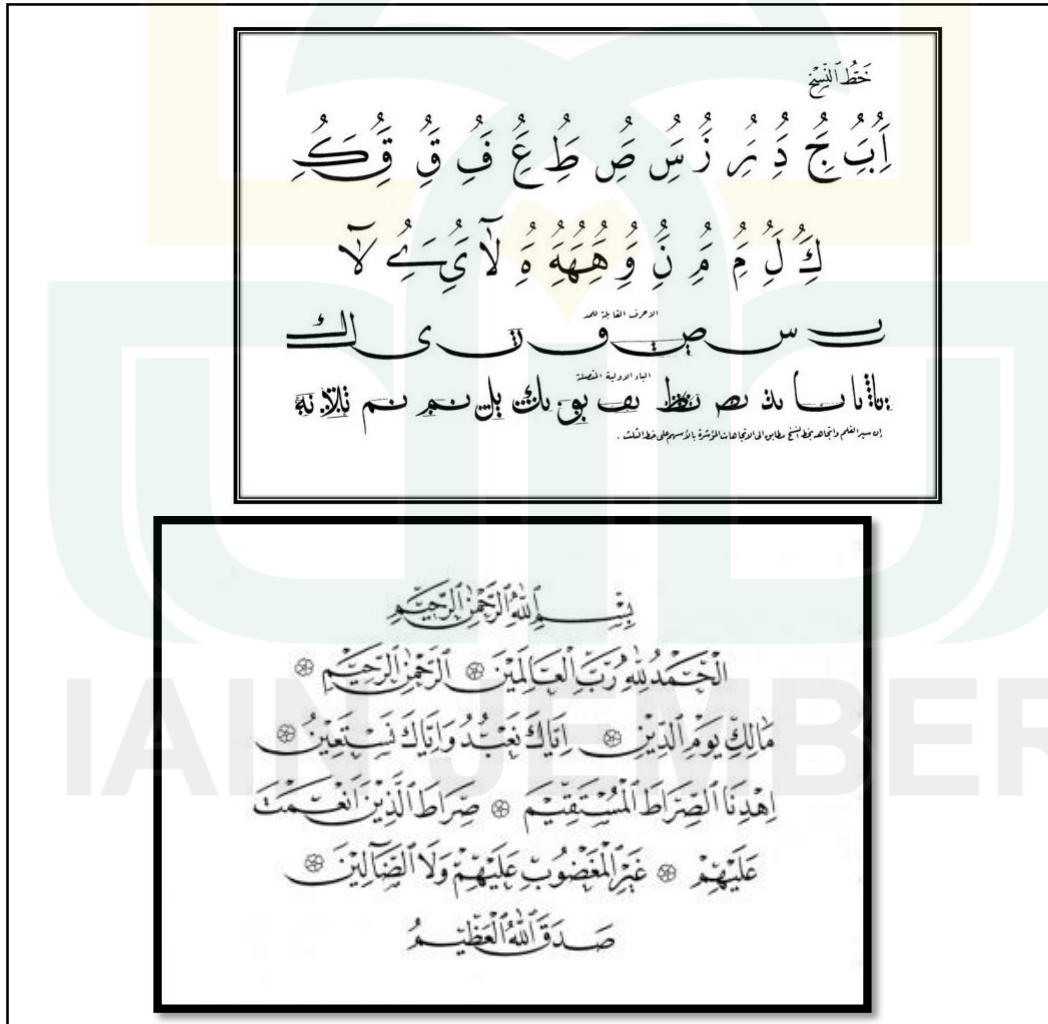 خَطُّ النَّسْخِ
أَبُ بِ جُ دِ رِ زُ سَ صِ طُ عُ فِ قِ قِ كَ
كِ لُ مِ مِ نُ وِ هُهِهِ هُ لَا يُ يِ لَا
الاحرف القابلة للمد
ب س ص ف ت ى ك
الباء الاولية المتصلة
إن سير القلم واتجاهه بخط النسخ مطابق الى الاتجاهات المؤشرة بالأسهم على خط الثلث .
بِسْمِ اللّٰهِ الرَّحْمٰنِ الرَّحِيْمِ
الْحَمْدُ لِلّٰهِ رَبِّ الْعَالَمِيْنَ الرَّحْمٰنِ الرَّحِيْمِ
مَالِكِ يَوْمِ الدِّيْنِ اِيَّاكَ نَعْبُدُ وَاِيَّاكَ نَسْتَعِيْنُ
اِهْدِنَا الصِّرَاطَ الْمُسْتَقِيْمَ صِرَاطَ الَّذِيْنَ اَنْعَمْتَ
عَلَيْهِمْ غَيْرِ الْمَغْضُوْبِ عَلَيْهِمْ وَلَا الضَّآلِيْنَ
صَدَقَ اللّٰهُ الْعَظِيْمُ
IAIN JEMBER